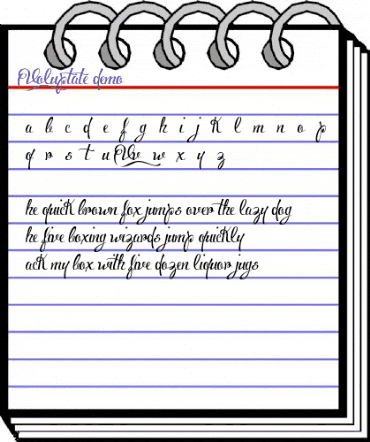 Voluptate demo
a b c d e f g h i j k l m n o p
q r s t u v w x y z
he quick brown fox jumps over the lazy dog
he five boxing wizards jump quickly
ack my box with five dozen liquor jugs